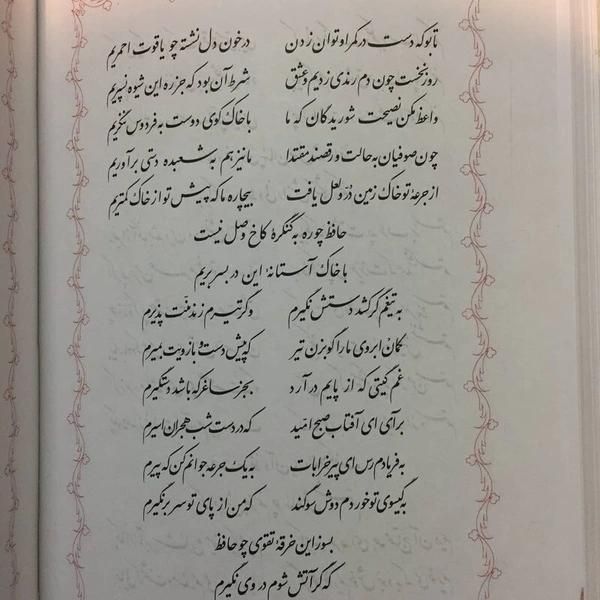 تا بو که دست در کمر او توان زدن در خون دل نشسته چو یاقوت احمریم
روز نخست چون دم رندی زدیم و عشق شرط آن بود که جز ره این شیوه نسپریم
واعظ مکن نصیحت شوریدگان که ما با خاک کوی دوست به فردوس ننگریم
چون صوفیان به حالت و رقصند مقتدا ما نیز هم به شعبده دستی برآوریم
از جرعهٔ تو خاک زمین درّ و لعل یافت بیچاره ما که پیش تو از خاک کمتریم
حافظ چو ره به کنگرهٔ کاخ وصل نیست
با خاک آستانهٔ این در بسر بریم
به تیغم گر کشد دستش نگیرم وگر تیرم زند منّت پذیرم
کمان ابروی ما را گو بزن تیر که پیش دست و بازویت بمیرم
غم گیتی که از پایم درآرد بجز ساغر که باشد دستگیرم
برآی ای آفتاب صبح امّید که در دست شب هجران اسیرم
به فریادم رس ای پیر خرابات به یک جرعه جوانم کن که پیرم
به گیسوی تو خوردم دوش سوگند که من از پای تو سر برنگیرم
بسوز این خرقهٔ تقوی چو حافظ
که گر آتش شوم در وی نگیرم